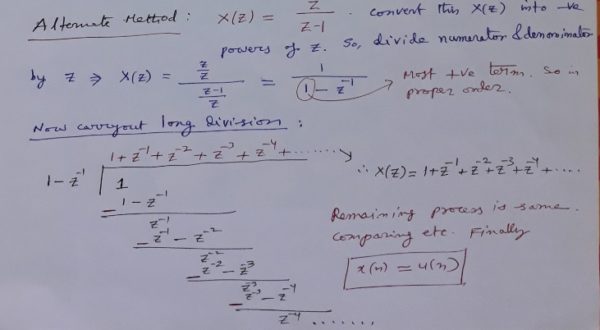 Alternate Method : X(z) = z/(z-1) . convert this X(z) into -ve
powers of z. So, divide numerator & denominator
by z ⇒ X(z) = (z/z)/((z-1)/z) = 1/(1 - z⁻¹)
Most +ve term. So in
proper order.
Now carryout long Division :
1 + z⁻¹ + z⁻² + z⁻³ + z⁻⁴ + ........
1 - z⁻¹ 1
∴ X(z) = 1 + z⁻¹ + z⁻² + z⁻³ + z⁻⁴ + .....
- 1 - z⁻¹
z⁻¹
- z⁻¹ - z⁻²
z⁻²
- z⁻² - z⁻³
z⁻³
- z⁻³ - z⁻⁴
z⁻⁴ .......
Remaining process is same.
Comparing etc. Finally
x(n) = u(n)